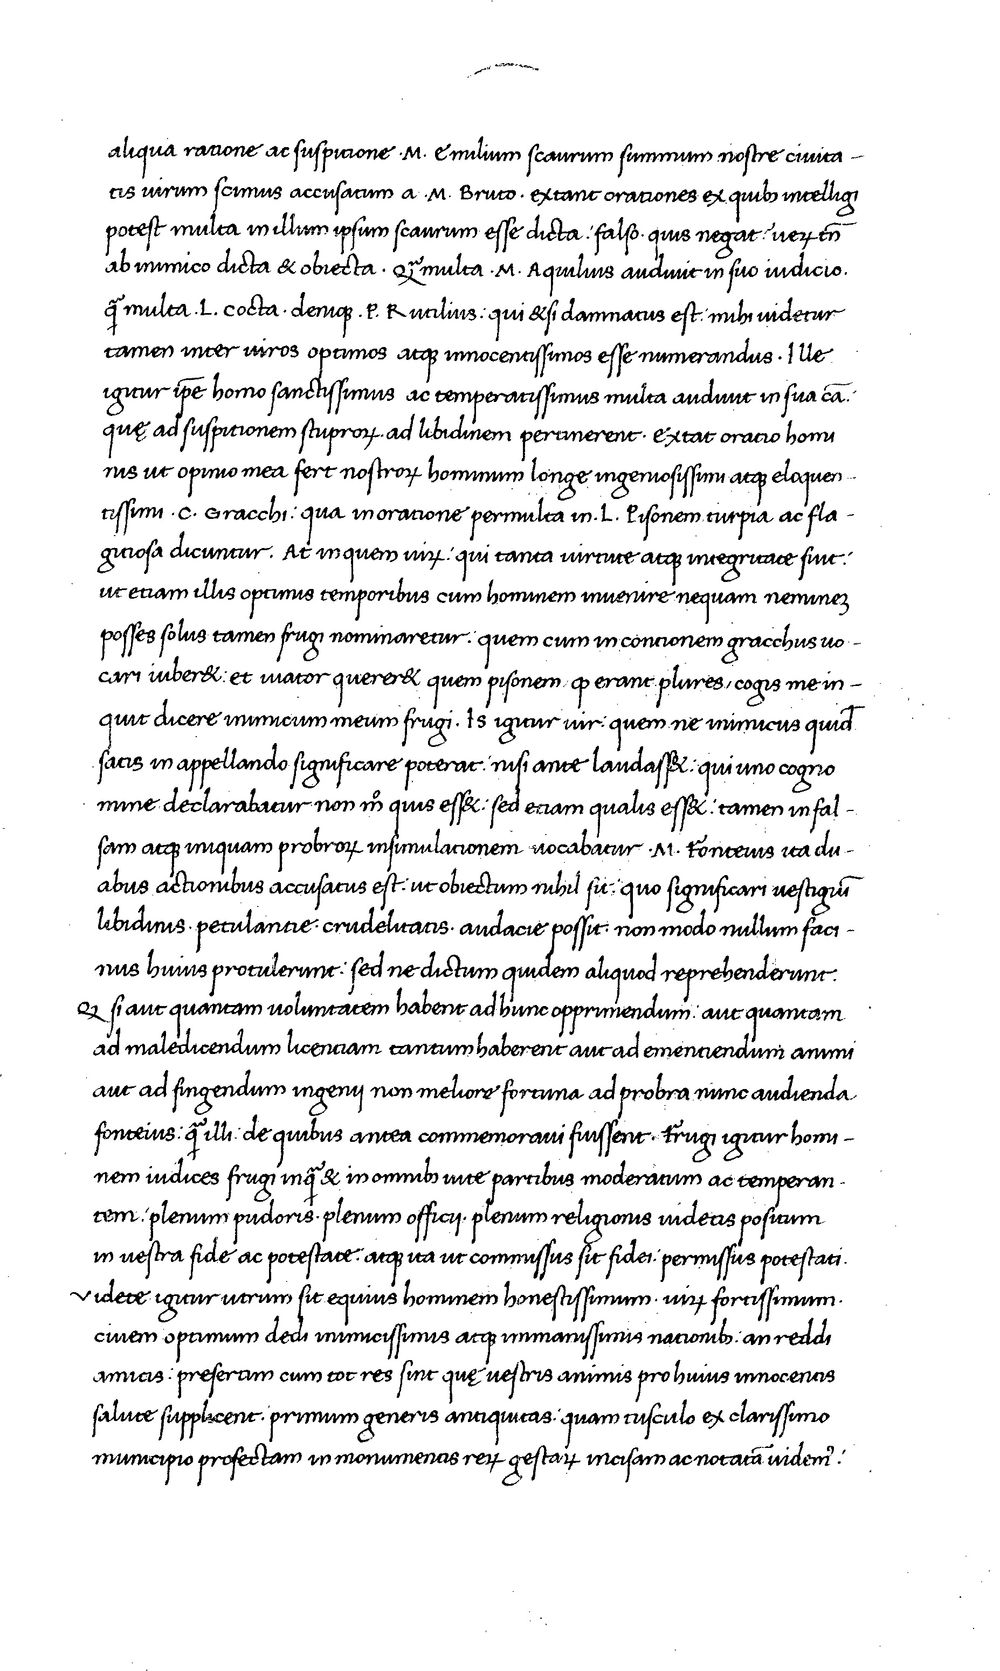 aliqua ratione ac suspitione ·M· Emilium scaurum summum nostre ciuita-
tis uirum scimus accusatum a ·M· Bruto · extant orationes ex quibꝫ intelligi
potest multa in illum ipsum scaurum esse dicta: falso · quis negat: ueꝝ tn̄
ab inimico dicta & obiecta · Qꝫ̃ multa ·M· Aquilius audiuit in suo iudicio.
q̃ multa .L. cocta · deniqꝫ .P. Rutilius: qui &si damnatus est: mihi uidetur
tamen inter uiros optimos atqꝫ innocentissimos esse numerandus · Ille
igitur ip̄e homo sanctissimus ac temperatissimus multa audiuit in sua cā:
quę ad suspitionem stuproꝝ. ad libidinem pertinerent · extat oratio homi
nis ut opinio mea fert nostroꝝ hominum longe ingeniosissimi atqꝫ eloquen-
tissimi · C. Gracchi: qua in oratione permulta in .L. Pisonem turpia ac fla-
gitiosa dicuntur. At in quem uiꝝ: qui tanta uirtute atqꝫ integritate fuit:
ut etiam illis optimis temporibus cum hominem inuenire nequam nemineꝫ
posses solus tamen frugi nominaretur: quem cum in contionem gracchus uo-
cari iuber&: et uiator querer& quem pisonem ꝙ erant plures, cogis me in-
quit dicere inimicum meum frugi. Is igitur uir: quem ne inimicus quid̄
satis in appellando significare poterat: nisi ante laudass&: qui uno cogno
mine declarabatur non m̊ quis ess&: sed etiam qualis ess&: tamen in fal-
sam atqꝫ iniquam probroꝝ insimulationem uocabatur ·M. Fonteius ita du-
abus actionibus accusatus est: ut obiectum nihil sit: quo significari uestigiū
libidinis · petulantie · crudelitatis · audacie possit: non modo nullum faci-
nus huius protulerunt: sed ne dictum quidem aliquod reprehenderunt.
Qꝫ si aut quantam uoluntatem habent ad hunc opprimendum: aut quantam
ad maledicendum licentiam tantum haberent aut ad ementiendum animi
aut ad fingendum ingenij non meliore fortuna ad probra nunc audienda
fonteius: q̃ illi: de quibus antea commemoraui fuissent. Frugi igitur homi-
nem iudices frugi inq̃ & in omnibꝫ uite partibus moderatum ac temperan-
tem: plenum pudoris · plenum officij · plenum religionis uidetis positum
in uestra fide ac potestate: atqꝫ ita ut commissus sit fidei: permissus potestati.
Videte igitur utrum sit equius hominem honestissimum · uiꝝ fortissimum ·
ciuem optimum dedi inimicissimis atqꝫ immanissimis nationibꝫ: an reddi
amicis: presertim cum tot res sint quę uestris animis pro huius innocentis
salute supplicent: primum generis antiquitas: quam tusculo ex clarissimo
municipio profectam in monumentis reꝝ gestaꝝ incisam ac notatā uidem᷒: